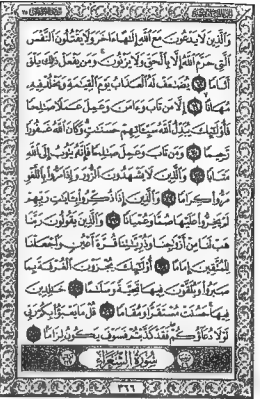 وَٱلَّذِينَ لَا يَدْعُونَ مَعَ ٱللَّهِ إِلَٰهًا ءَاخَرَ وَلَا يَقْتُلُونَ ٱلنَّفْسَ
ٱلَّتِي حَرَّمَ ٱللَّهُ إِلَّا بِٱلْحَقِّ وَلَا يَزْنُونَ وَمَن يَفْعَلْ ذَٰلِكَ يَلْقَ
أَثَامًا ٦٨ يُضَٰعَفْ لَهُ ٱلْعَذَابُ يَوْمَ ٱلْقِيَٰمَةِ وَيَخْلُدْ فِيهِۦ
مُهَانًا ٦٩ إِلَّا مَن تَابَ وَءَامَنَ وَعَمِلَ عَمَلًا صَٰلِحًا
فَأُو۟لَٰٓئِكَ يُبَدِّلُ ٱللَّهُ سَيِّـَٔاتِهِمْ حَسَنَٰتٍ وَكَانَ ٱللَّهُ غَفُورًا
رَّحِيمًا ٧٠ وَمَن تَابَ وَعَمِلَ صَٰلِحًا فَإِنَّهُۥ يَتُوبُ إِلَى ٱللَّهِ
مَتَابًا ٧١ وَٱلَّذِينَ لَا يَشْهَدُونَ ٱلزُّورَ وَإِذَا مَرُّوا۟ بِٱللَّغْوِ
مَرُّوا۟ كِرَامًا ٧٢ وَٱلَّذِينَ إِذَا ذُكِّرُوا۟ بِـَٔايَٰتِ رَبِّهِمْ
لَمْ يَخِرُّوا۟ عَلَيْهَا صُمًّا وَعُمْيَانًا ٧٣ وَٱلَّذِينَ يَقُولُونَ رَبَّنَا
هَبْ لَنَا مِنْ أَزْوَٰجِنَا وَذُرِّيَّٰتِنَا قُرَّةَ أَعْيُنٍ وَٱجْعَلْنَا
لِلْمُتَّقِينَ إِمَامًا ٧٤ أُو۟لَٰٓئِكَ يُجْزَوْنَ ٱلْغُرْفَةَ بِمَا
صَبَرُوا۟ وَيُلَقَّوْنَ فِيهَا تَحِيَّةً وَسَلَٰمًا ٧٥ خَٰلِدِينَ
فِيهَا حَسُنَتْ مُسْتَقَرًّا وَمُقَامًا ٧٦ قُلْ مَا يَعْبَؤُا۟ بِكُمْ رَبِّي
لَوْلَا دُعَآؤُكُمْ فَقَدْ كَذَّبْتُمْ فَسَوْفَ يَكُونُ لِزَامًا ٧٧
سُورَةُ ٱلشُّعَرَاءِ
٣٦٦